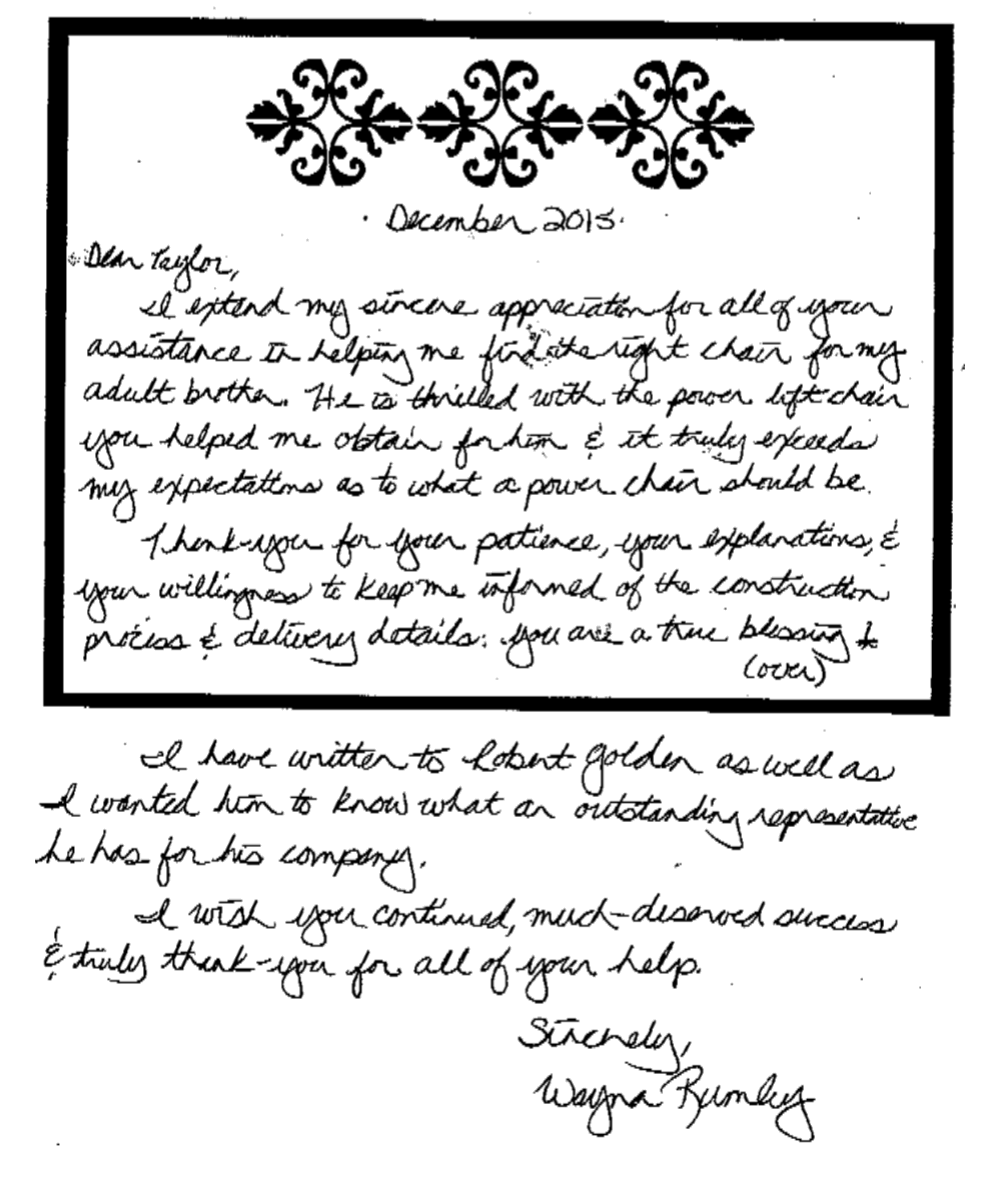 December 2015
Dear Taylor,
I extend my sincere appreciation for all of your
assistance in helping me find the right chair for my
adult brother. He is thrilled with the power lift chair
you helped me obtain for him & it truly exceeds
my expectations as to what a power chair should be.
Thank-you for your patience, your explanations, &
your willingness to keep me informed of the construction
process & delivery details. You are a true blessing
(over)
I have written to Robert Golden as well as
I wanted him to know what an outstanding representative
he has for his company.
I wish you continued, much-deserved success
& truly thank-you for all of your help.
Sincerely,
Wayna Rumley